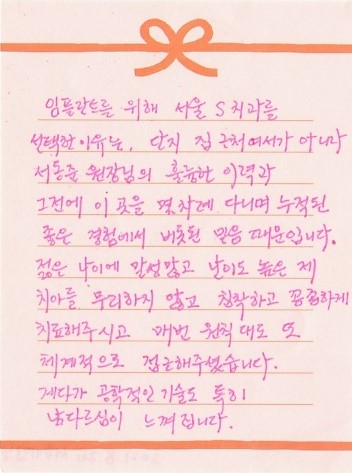 임플란트를 위해 서울 S치과를
선택한 이유는, 단지 집 근처여서가 아니라
서동준 원장님의 훌륭한 이력과
그전에 이 곳을 몇차례 다니며 누적된
좋은 경험에서 비롯된 믿음 때문입니다.
젊은 나이에 말썽많고 난이도 높은 제
치아를 무리하지 않고 침착하고 꼼꼼하게
치료해주시고 매번 원칙대로 또
체계적으로 접근해주셨습니다.
게다가 공학적인 기술도 특히
남다르심이 느껴집니다.